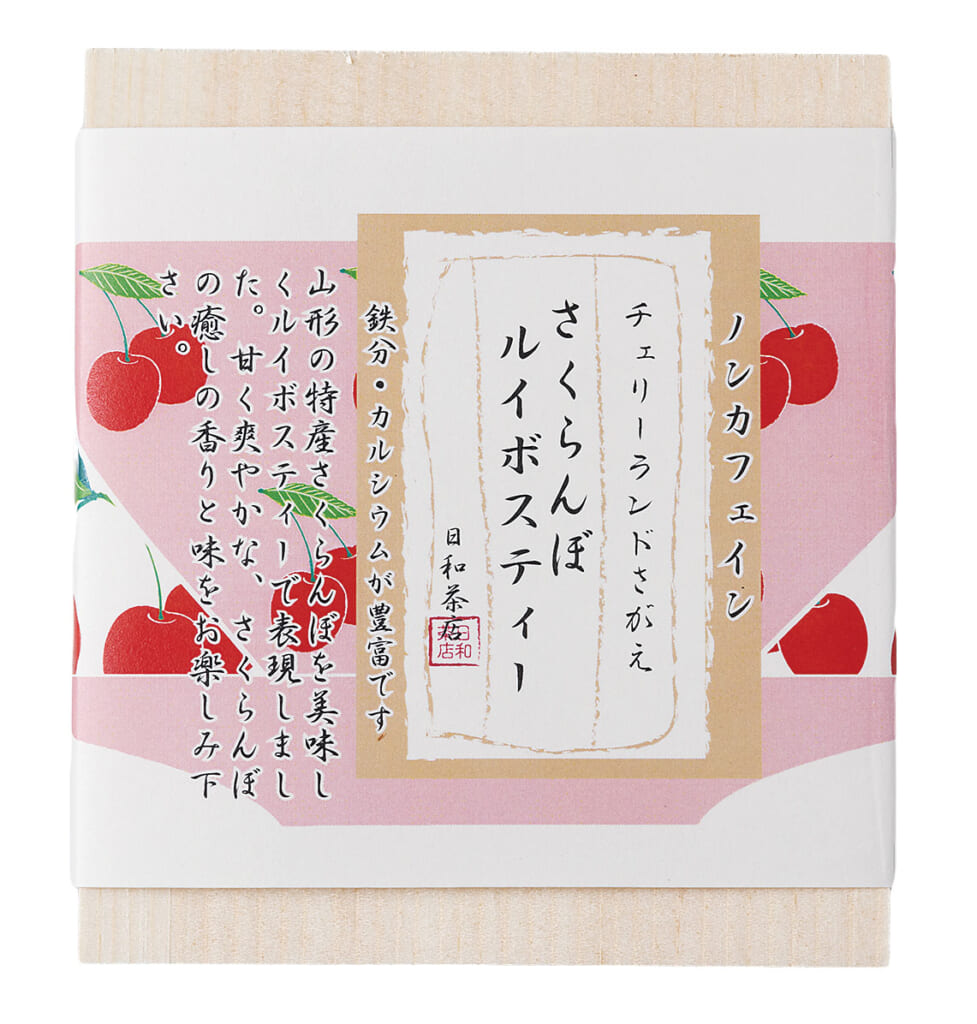 ノンカフェイン
チェリーランドさがえ
さくらんぼ
ルイボスティー
日和茶店
日和
茶店
鉄分・カルシウムが豊富です
山形の特産さくらんぼを美味し
くルイボスティーで表現しまし
た。甘く爽やかな、さくらんぼ
の癒しの香りと味をお楽しみ下
さい。